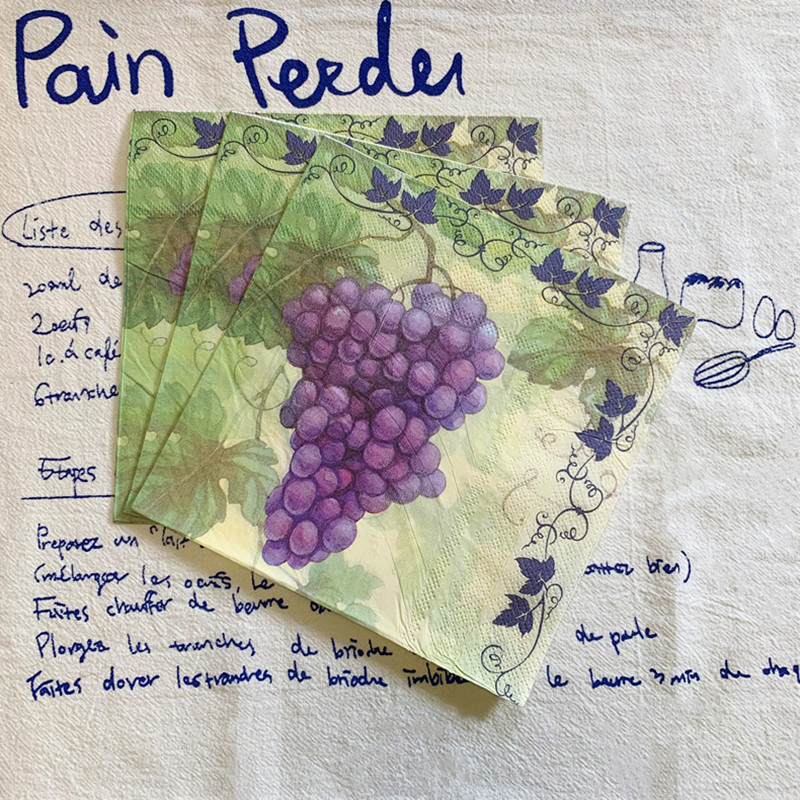 Pain Perdu
Liste des
200ml de
2 oeufs
1c.à café
6 tranche
Etapes
Preparez un "lait
(mélanger les oeufs, le bien)
Faites chauffer de beurre
Plongez les tranches de brioche de paele
Faites dorer les trandres de brioche imbibé le beurre 3 min de chaq